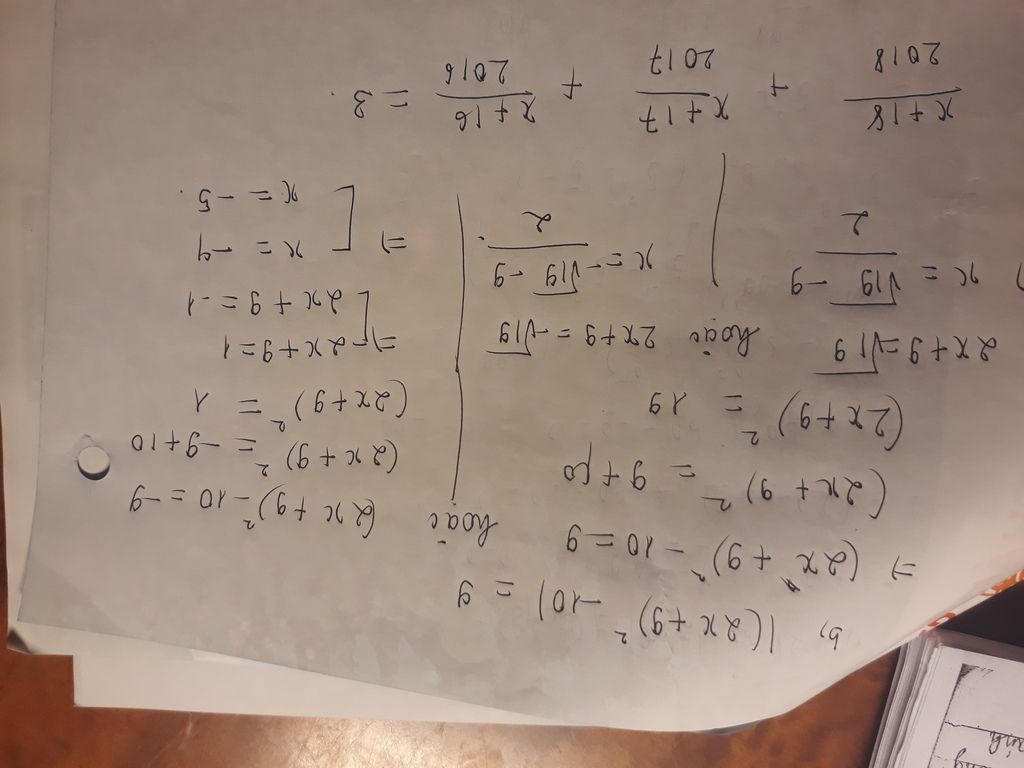 b, |(2x + 9)² - 10| = 9
=> (2x + 9)² - 10 = 9 hoặc (2x + 9)² - 10 = -9
(2x + 9)² = 9 + 10
(2x + 9)² = 19
2x + 9 = √19 hoặc 2x + 9 = -√19
x = (√19 - 9)/2 | x = (-√19 - 9)/2.
(2x + 9)² = -9 + 10
(2x + 9)² = 1
=> [ 2x + 9 = 1
2x + 9 = -1
=> [ x = -4
x = -5.
(x + 18)/2018 + (x + 17)/2017 + (x + 16)/2016 = 3.